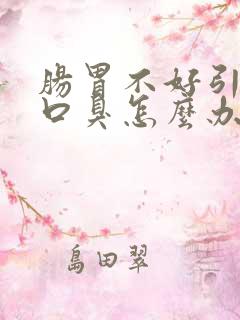 腸胃不好引
口臭怎麼办
島田翠